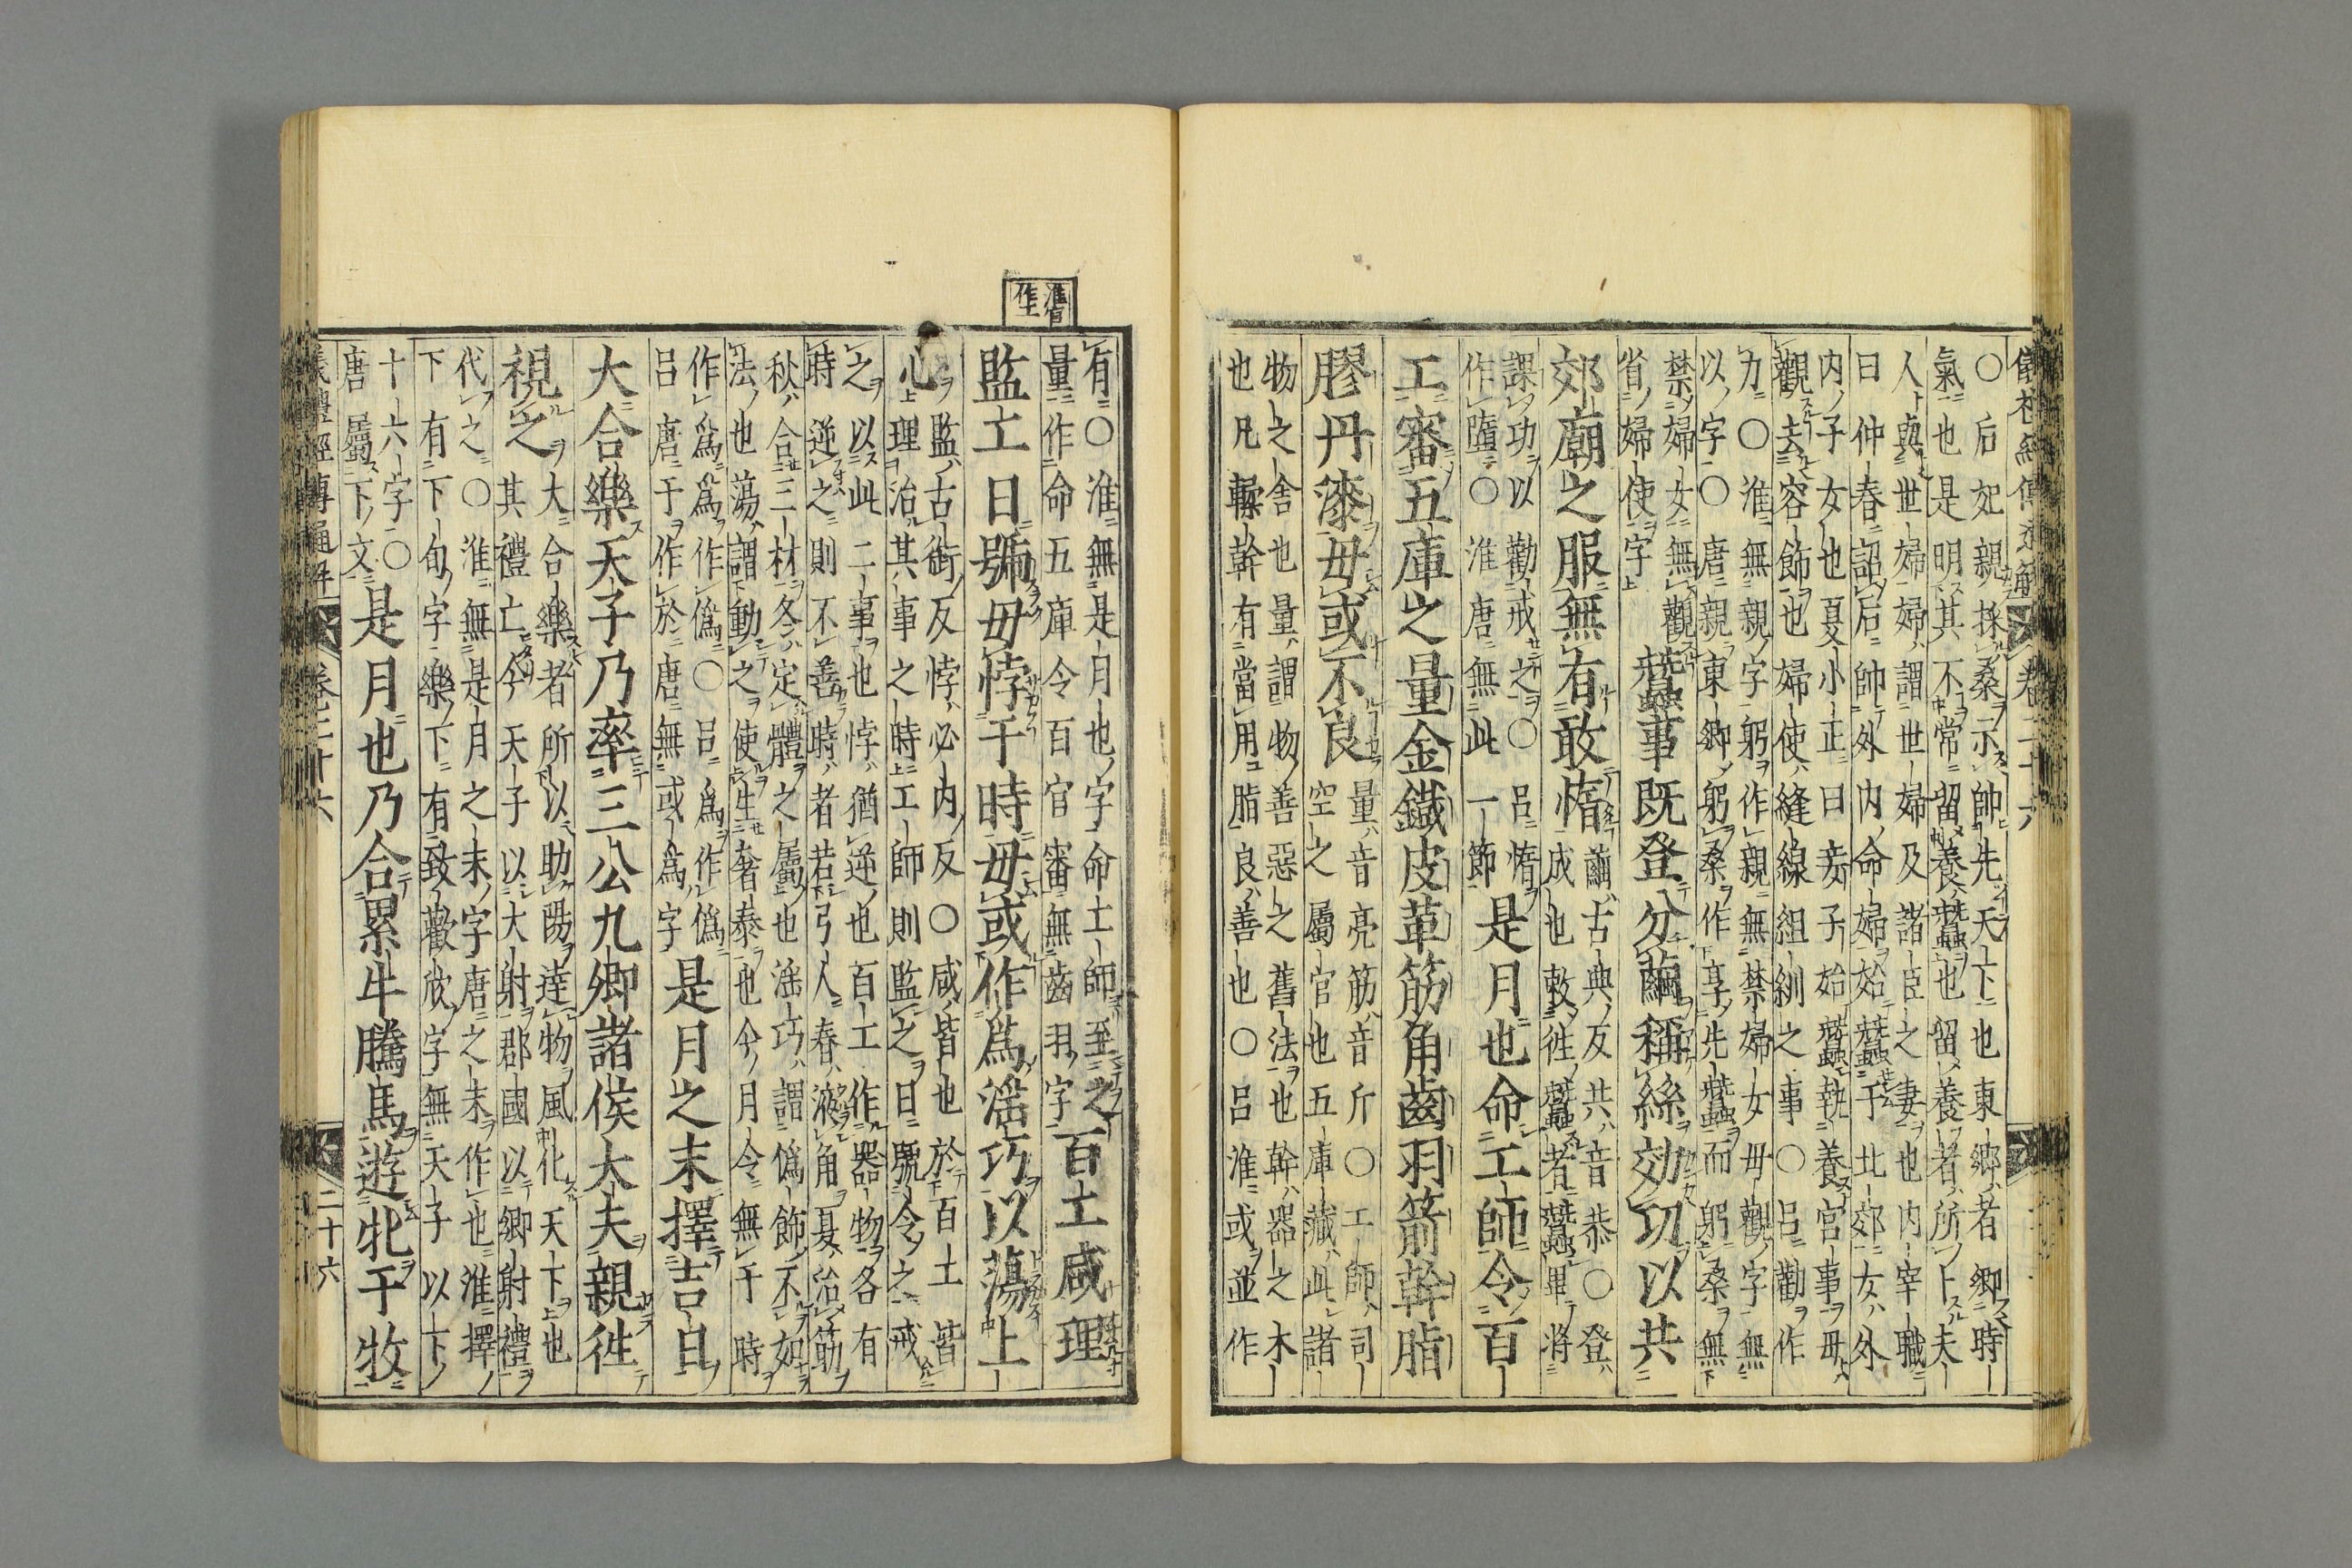 儀禮經傳通解 卷二十六
○后妃親採桑示帥先天下也東郷者郷時
氣也是明其不常留養蠶也留養者所卜夫
人與世婦婦謂世婦及諸臣之妻也内宰職
曰仲春詔后帥外内命婦始蠶于北郊女外
内子女也夏小正曰妾子始蠶執養宮事毋
觀去容飾也婦使縫線組紃之事○呂勸作
力○淮無親字躬作親無禁婦女毋觀字無
以字○唐親東郷躬桑作享先蠶而躬桑無
禁婦女無觀
省婦使字
蠶事既登分繭稱絲効功以共
郊廟之服無有敢惰
繭古典反共音恭○登
成也敕往蠶者蠶畢將
課功以勸戒之○呂惰
作墮○淮唐無此一節
是月也命工師令百
工審五庫之量金鐵皮革筋角齒羽箭幹脂
膠丹漆毋或不良
量音亮筋音斤○工師司
空之屬官也五庫藏此諸
物之舍也量謂物善惡之舊法也幹器之木
也凡輮幹有當用脂良善也○呂淮或並作
淮官
作土
有○淮無是月也字命土師至之
量作命五庫令百官審無齒羽字
百工咸理
監工日號毋悖于時毋或作爲淫巧以蕩上
心
監古銜反悖必内反○咸皆也於百土皆
理治其事之時工師則監之日號令之戒
之以此二事也悖猶逆也百工作器物各有
時逆之則不善時者若弓人春液角夏治筋
秋合三材冬定體之屬也淫巧謂僞飾不如
法也蕩謂動之使生奢泰也今月令無于時
作爲爲作僞○呂爲作僞
呂唐于作於唐無或爲字
是月之末擇吉日
大合樂天子乃率三公九卿諸侯大夫親徃
視之
大合樂者所以助陽達物風化天下也
其禮亡今天子以大射郡國以卿射禮
代之○淮無是月之末字唐之末作也淮擇
下有下旬字樂下有致歡欣字無天子以下
十六字○
唐屬下文
是月也乃合累牛騰馬遊牝于牧
儀禮經傳通解 卷二十六 二十六